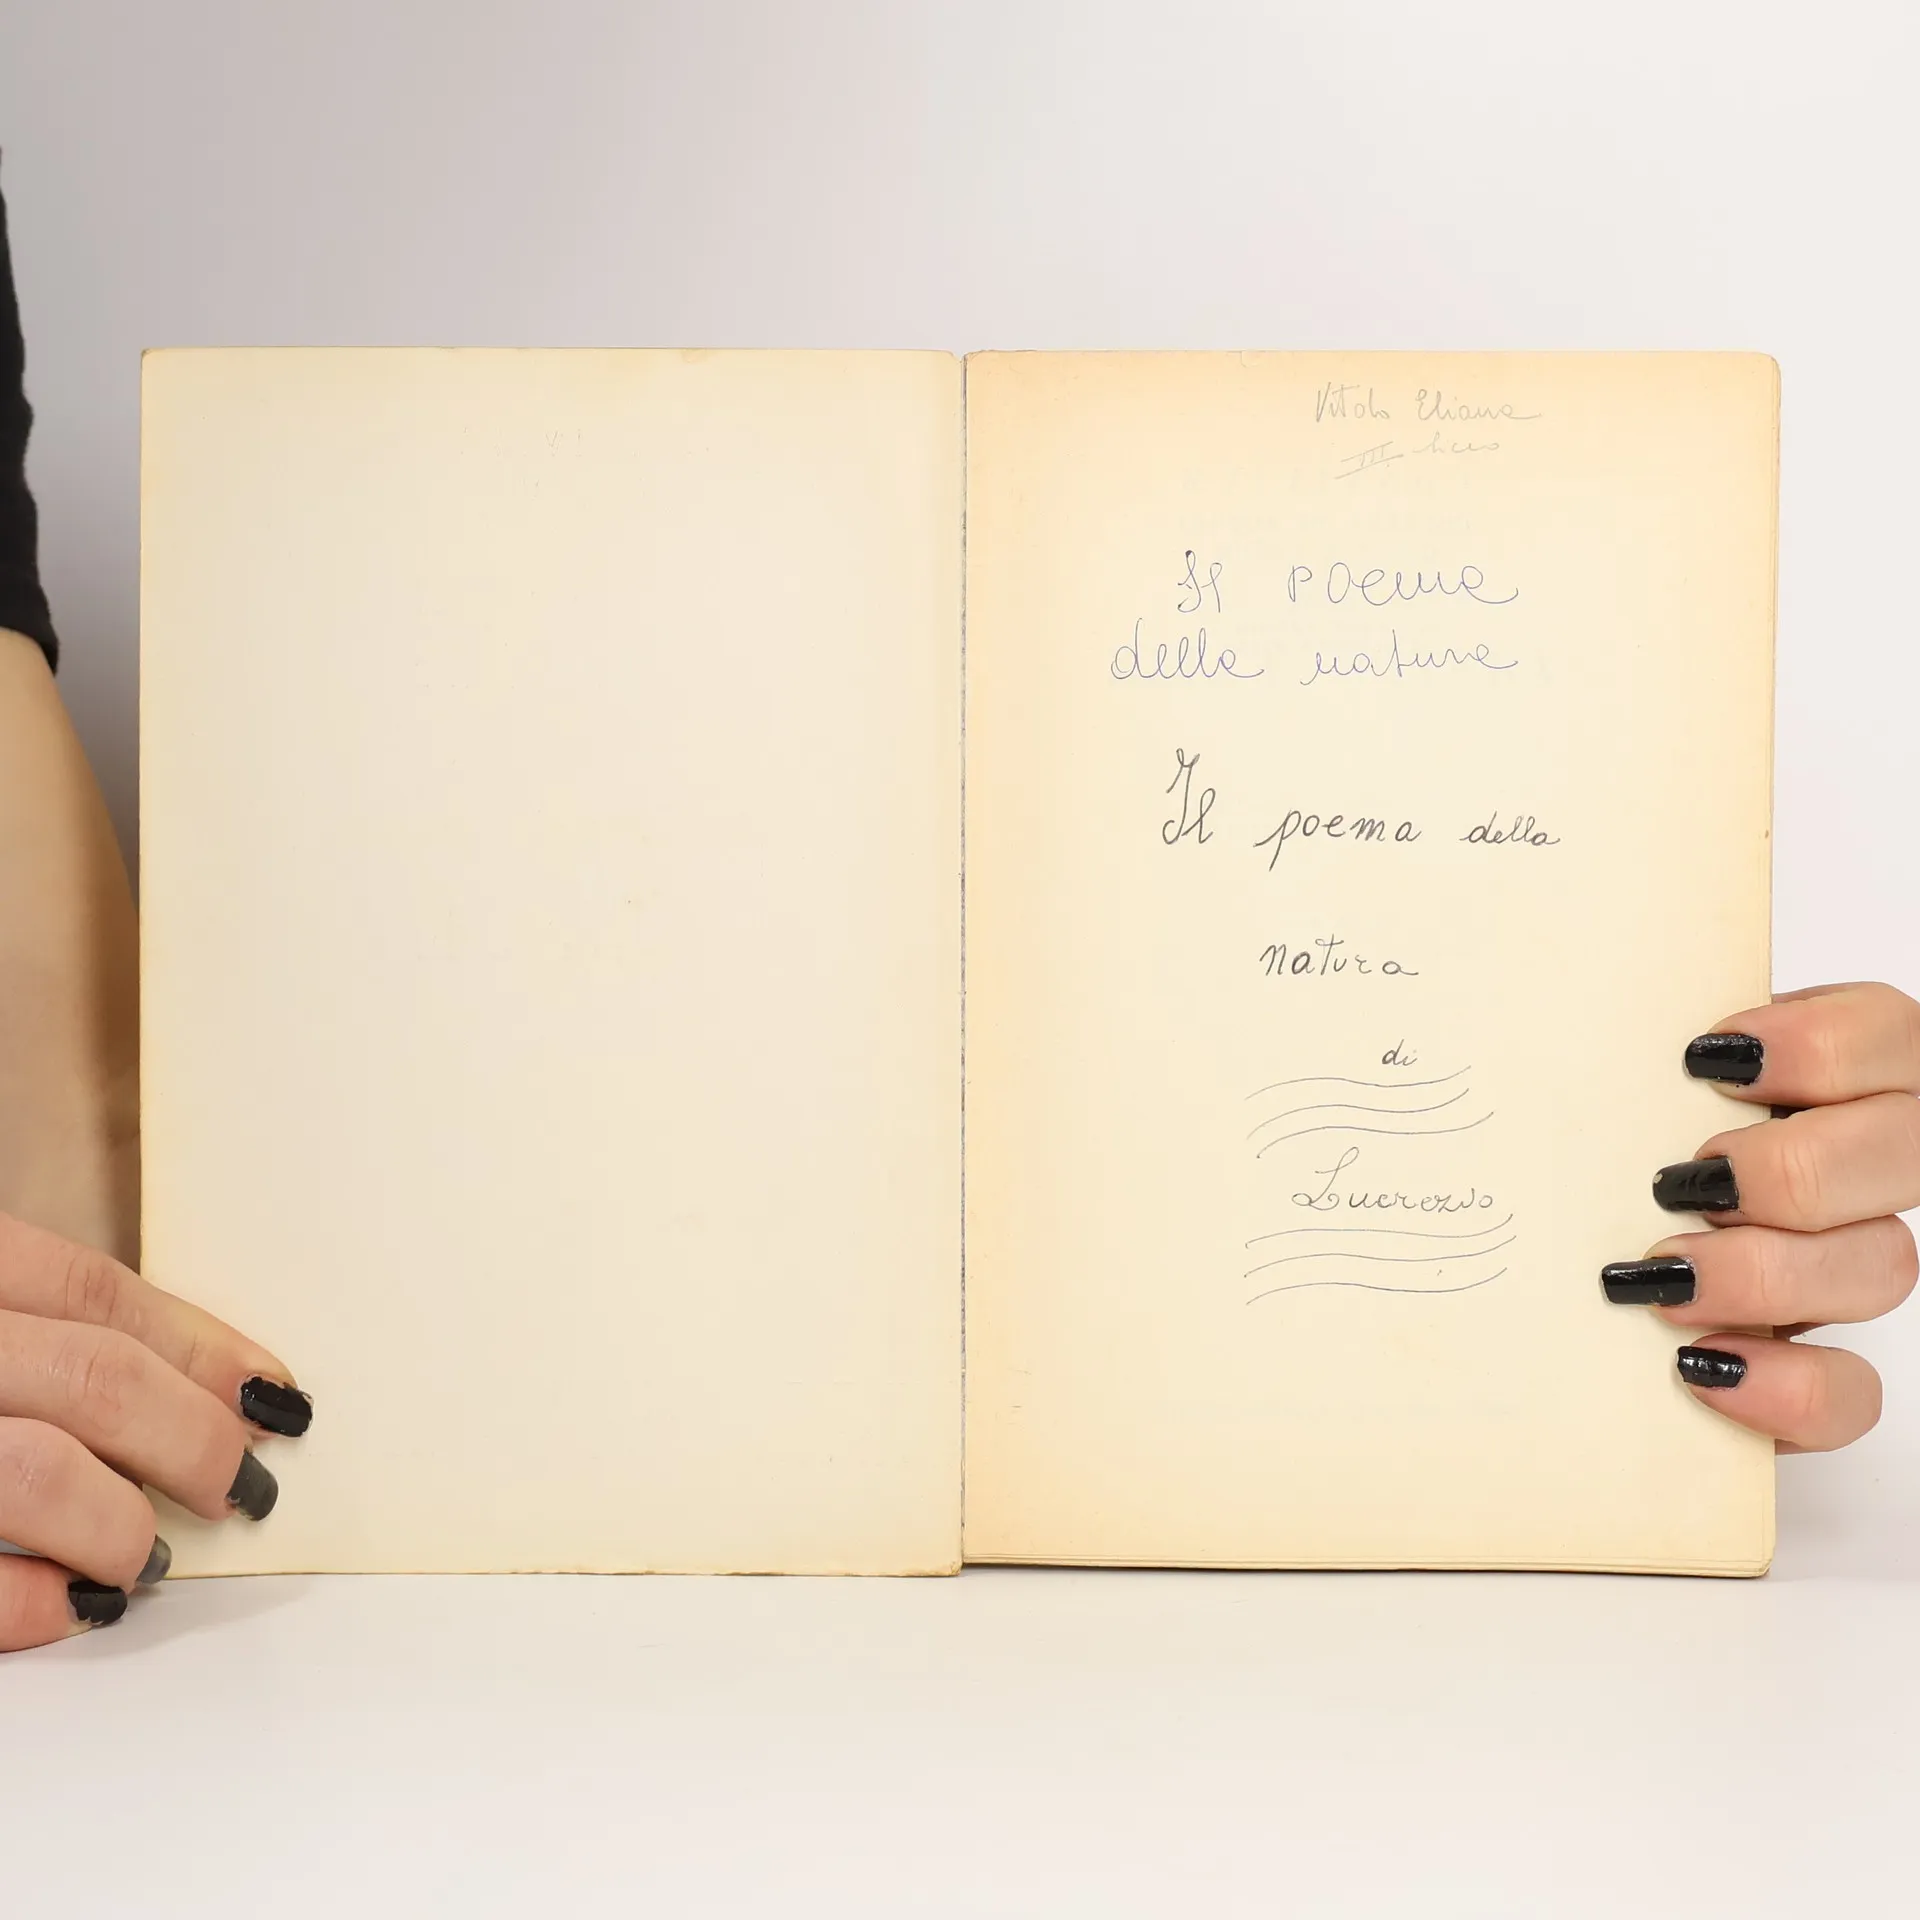 Vitolo Eliana
III liceo
Il poema
della natura
Il poema della
natura
di
Lucrezio